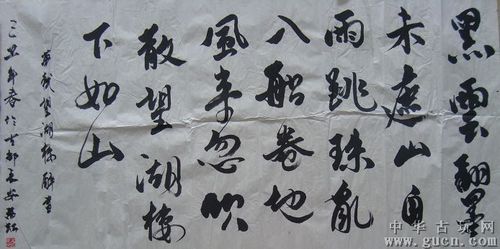 黑雲翻墨
未遮山白
雨跳珠亂
入船卷地
風来忽吹
散望湖樓
下如山
望湖樓醉書
年春於古都長安
中华古玩网
www.gucn.com